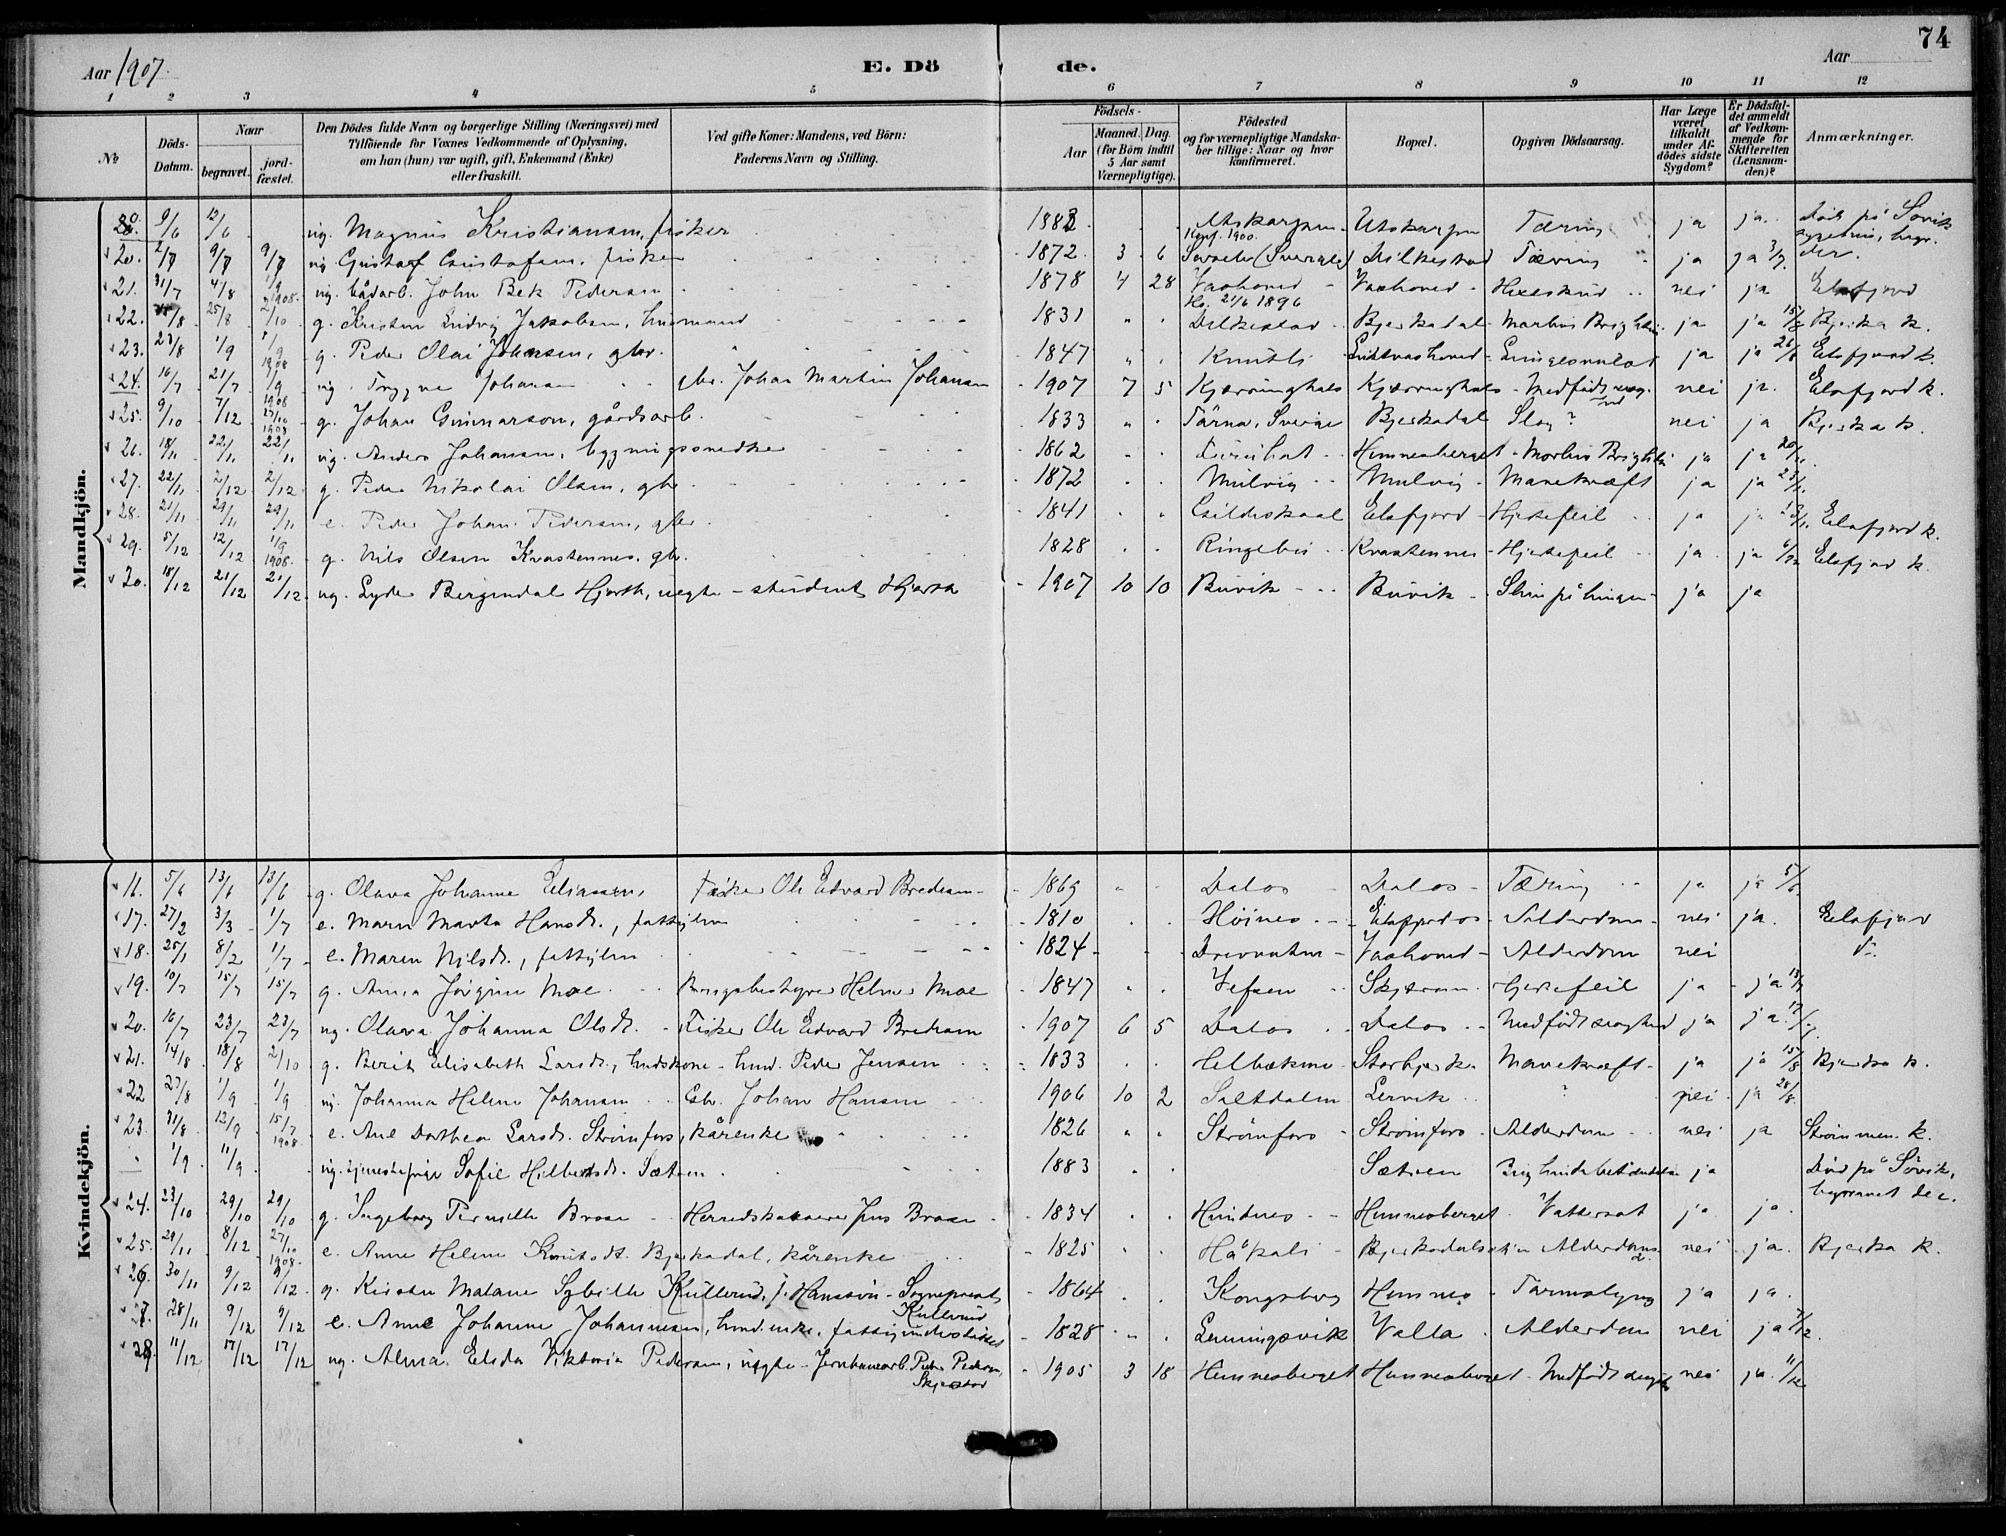 74
Aar 1907.
E. Dö
de.
Aar
1 2 3 4 5 6 7 8 9 10 11 12
No
Döds-Datum.
Naar
begravet.
jord-fæstet.
Den Dödes fulde Navn og borgerlige Stilling (Næringsvei) med
Tilföiende for Voxnes Vedkommende af Oplysning,
om han (hun) var ugift, gift, Enkemand (Enke)
eller fraskilt.
Ved gifte Koner: Mandens, ved Börn:
Faderens Navn og Stilling.
Födsels-
Aar
Maaned. Dag.
(for Börn indtil
5 Aar samt
Værnepligtige).
Födested
og for værnepligtige Mandska-
ber tillige: Naar og hvor
konfirmeret.
Bopæl.
Opgiven Dödsaarsag.
Har Læge
været
tilkaldt
under Af-
dödes sidste
Sygdom?
Er Dödsfal-
det anmeldt
af Vedkom-
mende for
Skifteretten
(Lensman-
den)?
Anmærkninger.
Mandkjön.
9/6 12/6 ug. Magnus Kristiansen, fisker 1883 Utskarpen Utskarpen Tæring ja ja Död på Sövik
Konf. 1900. sygehus, begr.
20. 9/7 9/7 ug. Gustaf Gustafsen, fisker 1872 3 6 (Sverige) Dilkestad Tæring ja ja 3/7 der.
21. 31/7 4/8 1/9 1908. ug. John Bek Pedersen 1878 4 28 Vashoved Vashoved nei ja Elsfjord
Ko. 21/6 1896
22. 25/8 2/10 g. Kristen Ludvig Jakobsen, husmand 1831 Dilkestad Bjerkadal Morbus Brightii ja ja 15/8 Bjerka k.
23. 23/8 1/9 1/9 1908 g. Peder Olai Johnsen, gbr. 1847 Knutli ja ja Elsfjord k.
24. 16/7 21/7 1/9 1908 ug. Trygve Johansen gbr. Johan Martin Johansen 1907 7 5 Kjærringhals Kjærringhals Medfödt nei ja Elsfjord k.
25. 9/10 7/12 27/10 1908 g. Johan Gunnarson, gårdsarb. 1833 Tärna, Sverige Bjerkadal Slag? nei ja Bjerka k.
26. 18/11 22/11 22/11 ug. Anders Johansen, bygningssnedker 1862 Hemnesberget Morbus Brightii ja ja 20/11
27. 22/11 2/12 2/12 g. Peder Nikolai Olsen, gbr. 1872 Mulvig Mulvig Mavekræft ja ja 23/11
28. 21/11 29/11 29/11 e. Peder Johan Pedersen, gbr. 1841 Gildeskaal Elsfjord Hjertefeil ja ja Elsfjord k.
29. 5/12 12/12 1/9 1908. g. Nils Olsen Kvastennes, gbr. 1828 Ringebu Kvastennes Hjertefeil ja ja 6/12 Elsfjord k.
30. 18/12 21/12 21/12 ug. Lyder Bergendal Hjorth, uegte student Hjorth 1907 10 10 Buvik Buvik Slim på lungen ja ja
Kvindekjön.
16. 5/6 13/6 13/6 g. Olava Johanne Eliassen, Fisker Ole Edvard Bredesen 1869 Dalos Dalos Tæring ja ja 5/6
17. 27/2 3/3 1/7 e. Maren Marta Hansdt., fattiglem 1810 Höines Elsfjordos Alderdom nei ja Elsfjord
18. 25/1 8/2 1/7 e. Maren Nilsdt., fattiglem 1824 Drevvatne Vashoved Alderdom nei do
19. 10/7 15/7 15/7 g. Anna Jörgine Moe Helmer Moe 1847 Vefsen Hjertefeil ja ja 13/7
20. 16/7 23/7 23/7 ug. Olava Johanna Olsdt. Fisker Ole Edvard Bredesen 1907 6 5 Dalos Dalos Medfödt svaghed ja ja 17/7
21. 14/8 18/8 2/10 g. Berit Elisabeth Larsdt., husdskone husd. Peder Jensen 1833 Storbjerka Mavekræft ja ja 15/8 Bjerka k.
22 27/8 1/9 1/9 ug. Johanna Heline Johansen Gbr. Johan Hansen 1906 10 2 Saltdalen Lervik ? nei ja 28/8
23. 31/8 12/9 15/7 1908 e. Ane Dorthea Larsdt. Strömfors, kårenke 1826 Strömfors Strömfors Alderdom nei ja Strömmen k.
1/9 11/9 ug. tjenestepige Sofie Hilbertsdt. Sætren 1883 Sætren ja Död på Sövik,
begravet der.
24. 23/10 29/10 29/10 g. Ingeborg Pernille Brose Herredskasserer Jens Brose 1834 Hemnesberget Vattersot ja ja
25. 29/11 8/12 27/10 1908. e. Anne Helene Knutsdt. Bjerkadal, kårenke 1825 Håkali Alderdom nei ja Bjerka k.
26. 30/11 9/12 9/12 g. Kirsten Malene Sybille Kullerud, f. Hanssön Sogneprest 1864 Kongsberg Hemnes Tarmslyng ja ja
Kullerud
27. 28/11 9/12 9/12 e. Anne Johanne Johannesen, husd.enke, fattigunderstöttet 1828 Lenningsvik Valla Alderdom nei ja 7/12.
28. 11/12 17/12 17/12 ug. Alma Elida Viktoria Pedersen, uegte Jernbanearb. Peder Pedersen, 1905 3 18 Hemnesberget Hemnesberget Medfödt nei ja 11/12